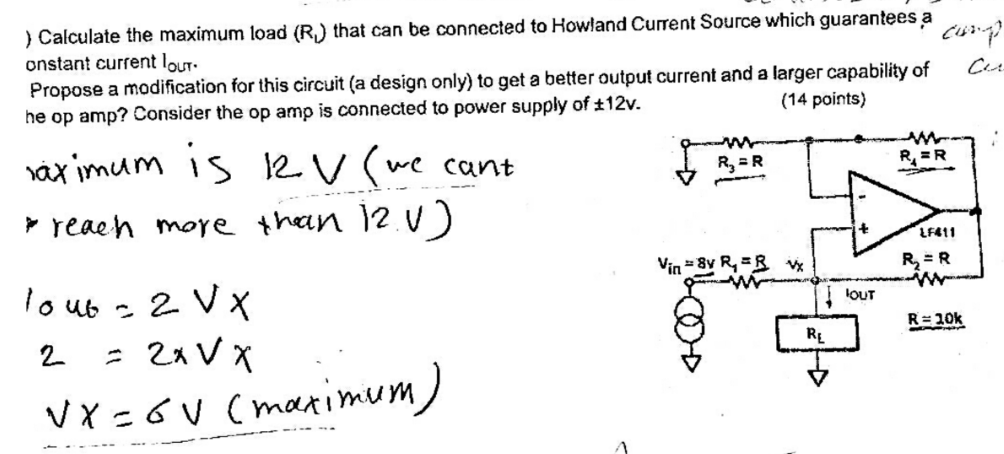 ) Calculate the maximum load (RL) that can be connected to Howland Current Source which guarantees a
onstant current IOUT.
Propose a modification for this circuit (a design only) to get a better output current and a larger capability of
he op amp? Consider the op amp is connected to power supply of ±12v.
(14 points)
aximum is 12 V (we cant
reach more than 12 V)
= 2 VX
2 = 2x VX
VX = 6 V (maximum)
R3 = R
R4 = R
-
+
LF411
Vin = 8v R1 = R Vx
R2 = R
IOUT
R = 10k
RL